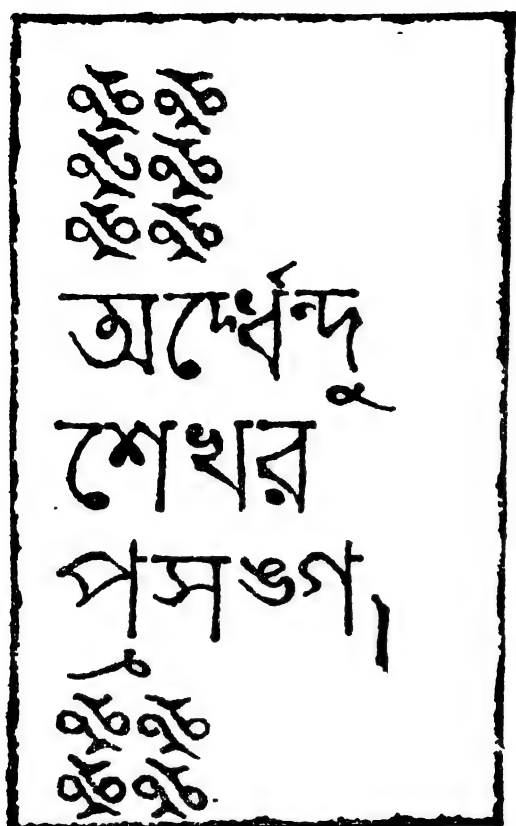 অর্দ্ধেন্দু
শেখর
প্রসঙ্গ।